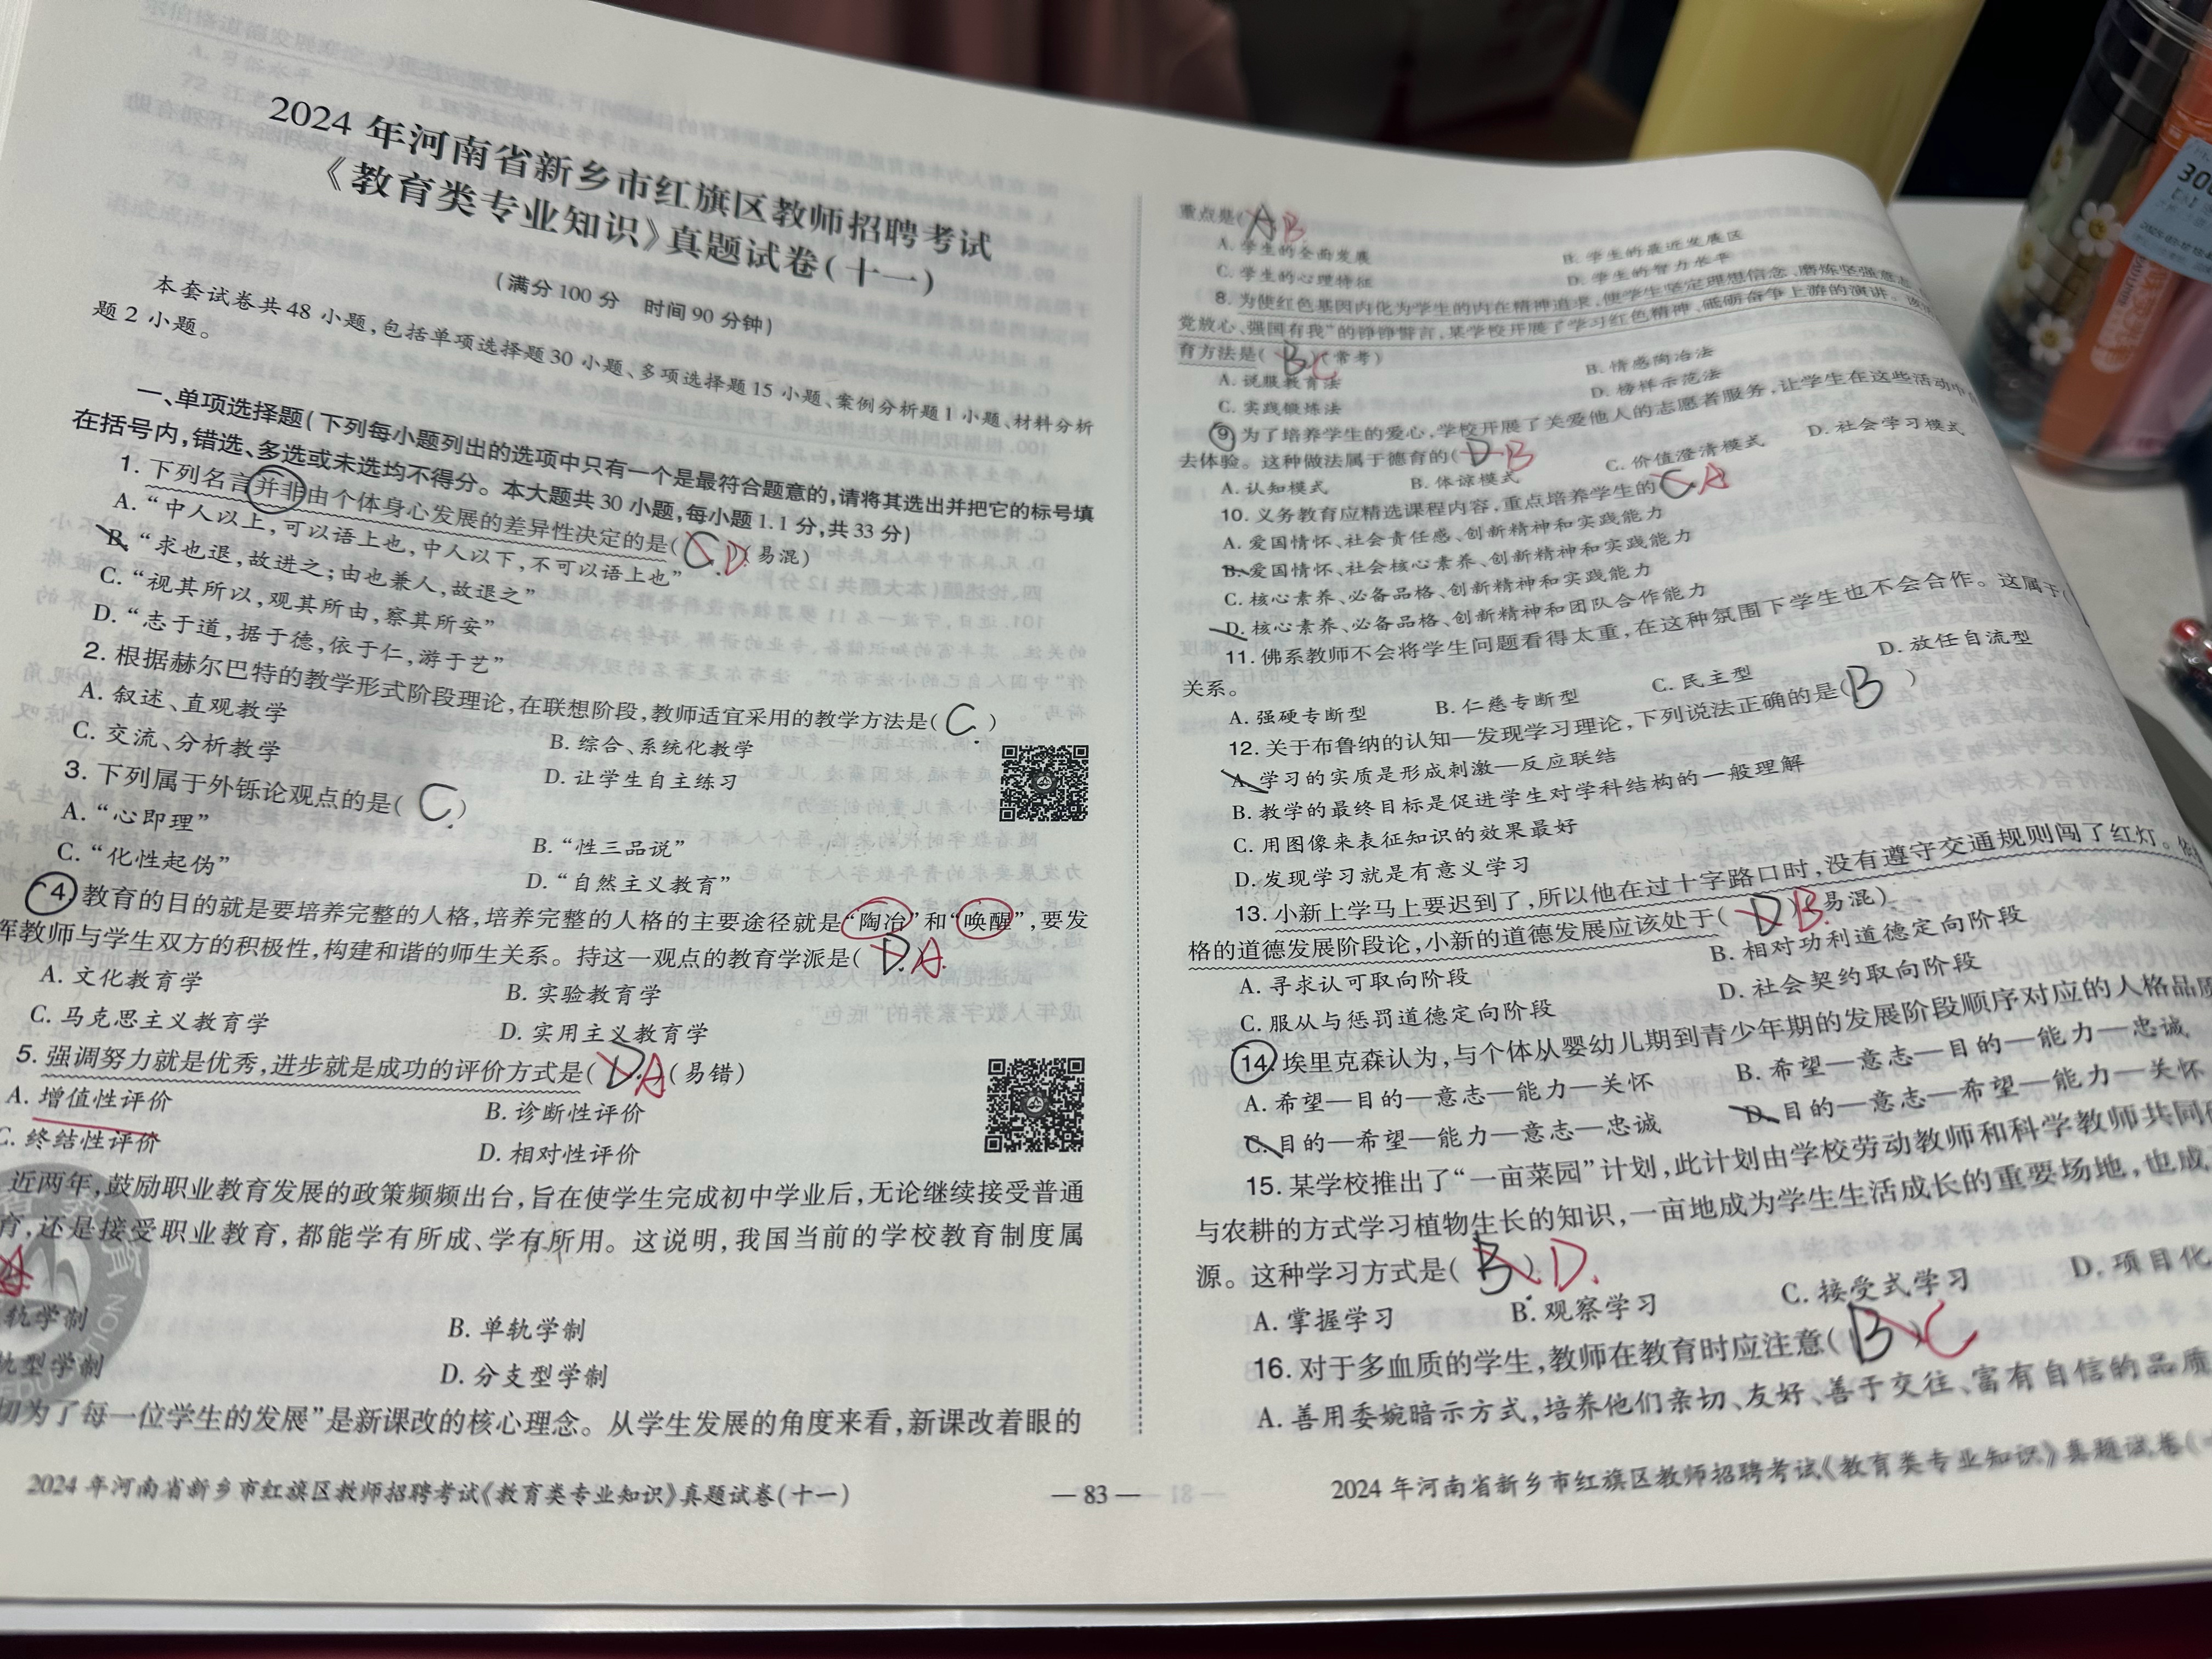 2024 年河南省新乡市红旗区教师招聘考试
《教育类专业知识》真题试卷(十一)
(满分 100 分 时间 90 分钟)
本套试卷共 48 小题,包括单项选择题 30 小题、多项选择题 15 小题、案例分析题 1 小题、材料分析
题 2 小题。
一、单项选择题(下列每小题列出的选项中只有一个是最符合题意的,请将其选出并把它的标号填
在括号内,错选、多选或未选均不得分。本大题共 30 小题,每小题 1.1 分,共 33 分)
1. 下列名言并非由个体身心发展的差异性决定的是( C D )(易混)
A. “中人以上,可以语上也,中人以下,不可以语上也”
B. “求也退,故进之;由也兼人,故退之”
C. “视其所以,观其所由,察其所安”
D. “志于道,据于德,依于仁,游于艺”
2. 根据赫尔巴特的教学形式阶段理论,在联想阶段,教师适宜采用的教学方法是( C )
A. 叙述、直观教学 B. 综合、系统化教学
C. 交流、分析教学 D. 让学生自主练习
3. 下列属于外铄论观点的是( C )
A. “心即理” B. “性三品说”
C. “化性起伪” D. “自然主义教育”
4. 教育的目的就是要培养完整的人格,培养完整的人格的主要途径就是“陶冶”和“唤醒”,要发
挥教师与学生双方的积极性,构建和谐的师生关系。持这一观点的教育学派是( D A )
A. 文化教育学 B. 实验教育学
C. 马克思主义教育学 D. 实用主义教育学
5. 强调努力就是优秀,进步就是成功的评价方式是( D A )(易错)
A. 增值性评价 B. 诊断性评价
C. 终结性评价 D. 相对性评价
近两年,鼓励职业教育发展的政策频频出台,旨在使学生完成初中学业后,无论继续接受普通
育,还是接受职业教育,都能学有所成、学有所用。这说明,我国当前的学校教育制度属
轨学制 B. 单轨学制
轨型学制 D. 分支型学制
切为了每一位学生的发展”是新课改的核心理念。从学生发展的角度来看,新课改着眼的
2024 年河南省新乡市红旗区教师招聘考试《教育类专业知识》真题试卷(十一)
— 83 —
重点是( A B
A. 学生的全面发展 B. 学生的最近发展区
C. 学生的心理特征 D. 学生的智力水平
8. 为使红色基因内化为学生的内在精神追求,使学生坚定理想信念、磨炼坚强意志
党放心、强国有我”的铮铮誓言,某学校开展了学习红色精神、砥砺奋争上游的演讲。该
育方法是( B C )(常考)
A. 说服教育法 B. 情感陶冶法
C. 实践锻炼法 D. 榜样示范法
9. 为了培养学生的爱心,学校开展了关爱他人的志愿者服务,让学生在这些活动中
去体验。这种做法属于德育的( D B
A. 认知模式 B. 体谅模式 C. 价值澄清模式 D. 社会学习模式
10. 义务教育应精选课程内容,重点培养学生的( C A
A. 爱国情怀、社会责任感、创新精神和实践能力
B. 爱国情怀、社会核心素养、创新精神和实践能力
C. 核心素养、必备品格、创新精神和实践能力
D. 核心素养、必备品格、创新精神和团队合作能力
11. 佛系教师不会将学生问题看得太重,在这种氛围下学生也不会合作。这属于(
关系。
A. 强硬专断型 B. 仁慈专断型 C. 民主型 D. 放任自流型
12. 关于布鲁纳的认知—发现学习理论,下列说法正确的是( B )
A. 学习的实质是形成刺激—反应联结
B. 教学的最终目标是促进学生对学科结构的一般理解
C. 用图像来表征知识的效果最好
D. 发现学习就是有意义学习
13. 小新上学马上要迟到了,所以他在过十字路口时,没有遵守交通规则闯了红灯。依
格的道德发展阶段论,小新的道德发展应该处于( D B )(易混)
A. 寻求认可取向阶段 B. 相对功利道德定向阶段
C. 服从与惩罚道德定向阶段 D. 社会契约取向阶段
14. 埃里克森认为,与个体从婴幼儿期到青少年期的发展阶段顺序对应的人格品质
A. 希望—目的—意志—能力—关怀 B. 希望—意志—目的—能力—忠诚
C. 目的—希望—能力—意志—忠诚 D. 目的—意志—希望—能力—关怀
15. 某学校推出了“一亩菜园”计划,此计划由学校劳动教师和科学教师共同
与农耕的方式学习植物生长的知识,一亩地成为学生生活成长的重要场地,也成
源。这种学习方式是( B ) D.
A. 掌握学习 B. 观察学习 C. 接受式学习 D. 项目化
16. 对于多血质的学生,教师在教育时应注意( B ) C
A. 善用委婉暗示方式,培养他们亲切、友好、善于交往、富有自信的品质
2024 年河南省新乡市红旗区教师招聘考试《教育类专业知识》真题试卷(